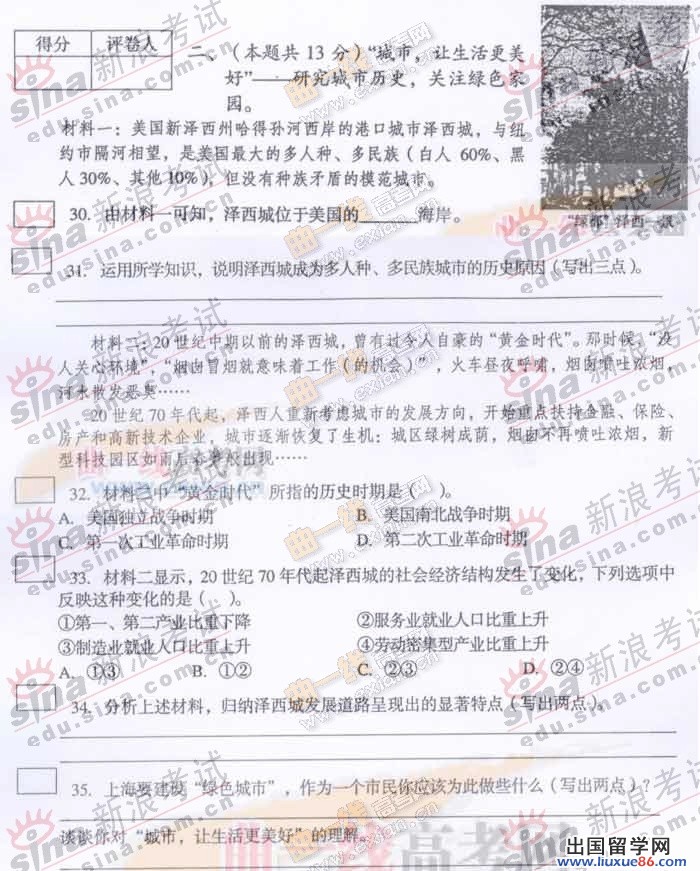 得分 评卷人
二、（本题共 13 分）“城市，让生活更美
好”——研究城市历史，关注绿色家
园。
材料一：美国新泽西州哈得孙河西岸的港口城市泽西城，与纽
约市隔河相望，是美国最大的多人种、多民族（白人 60%、黑
人 30%、其他 10%），但没有种族矛盾的模范城市。
“绿都”泽西一瞥
30. 由材料一可知，泽西城位于美国的______海岸。
31. 运用所学知识，说明泽西城成为多人种、多民族城市的历史原因（写出三点）。
材料二：20 世纪中期以前的泽西城，曾有过令人自豪的“黄金时代”。那时候，“没
人关心环境”，“烟囱冒烟就意味着工作（的机会）”，火车昼夜呼啸，烟囱喷吐浓烟，
河水散发恶臭……
20 世纪 70 年代起，泽西人重新考虑城市的发展方向，开始重点扶持金融、保险、
房产和高新技术企业，城市逐渐恢复了生机：城区绿树成荫，烟囱不再喷吐浓烟，新
型科技园区如雨后春笋般出现……
32. 材料二中“黄金时代”所指的历史时期是（ ）。
A. 美国独立战争时期 B. 美国南北战争时期
C. 第一次工业革命时期 D. 第二次工业革命时期
33. 材料二显示，20 世纪 70 年代起泽西城的社会经济结构发生了变化，下列选项中
反映这种变化的是（ ）。
①第一、第二产业比重下降 ②服务业就业人口比重上升
③制造业就业人口比重上升 ④劳动密集型产业比重上升
A. ①③ B. ①② C. ②③ D. ②④
34. 分析上述材料，归纳泽西城发展道路呈现出的显著特点（写出两点）。
35. 上海要建设“绿色城市”，作为一个市民你应该为此做些什么（写出两点）？
谈谈你对“城市，让生活更美好”的理解。
sina 新浪考试
edu.sina.com.cn
曲一线高考网
www.exian.com.cn
出国留学网
www.liuxue86.com